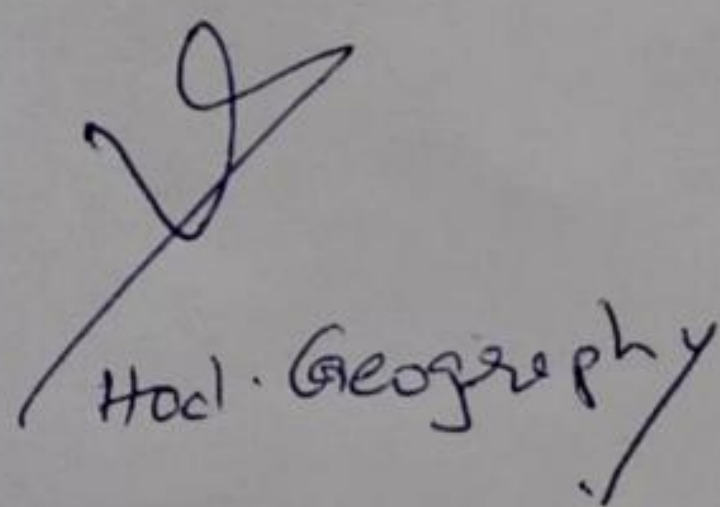 Hod. Geography